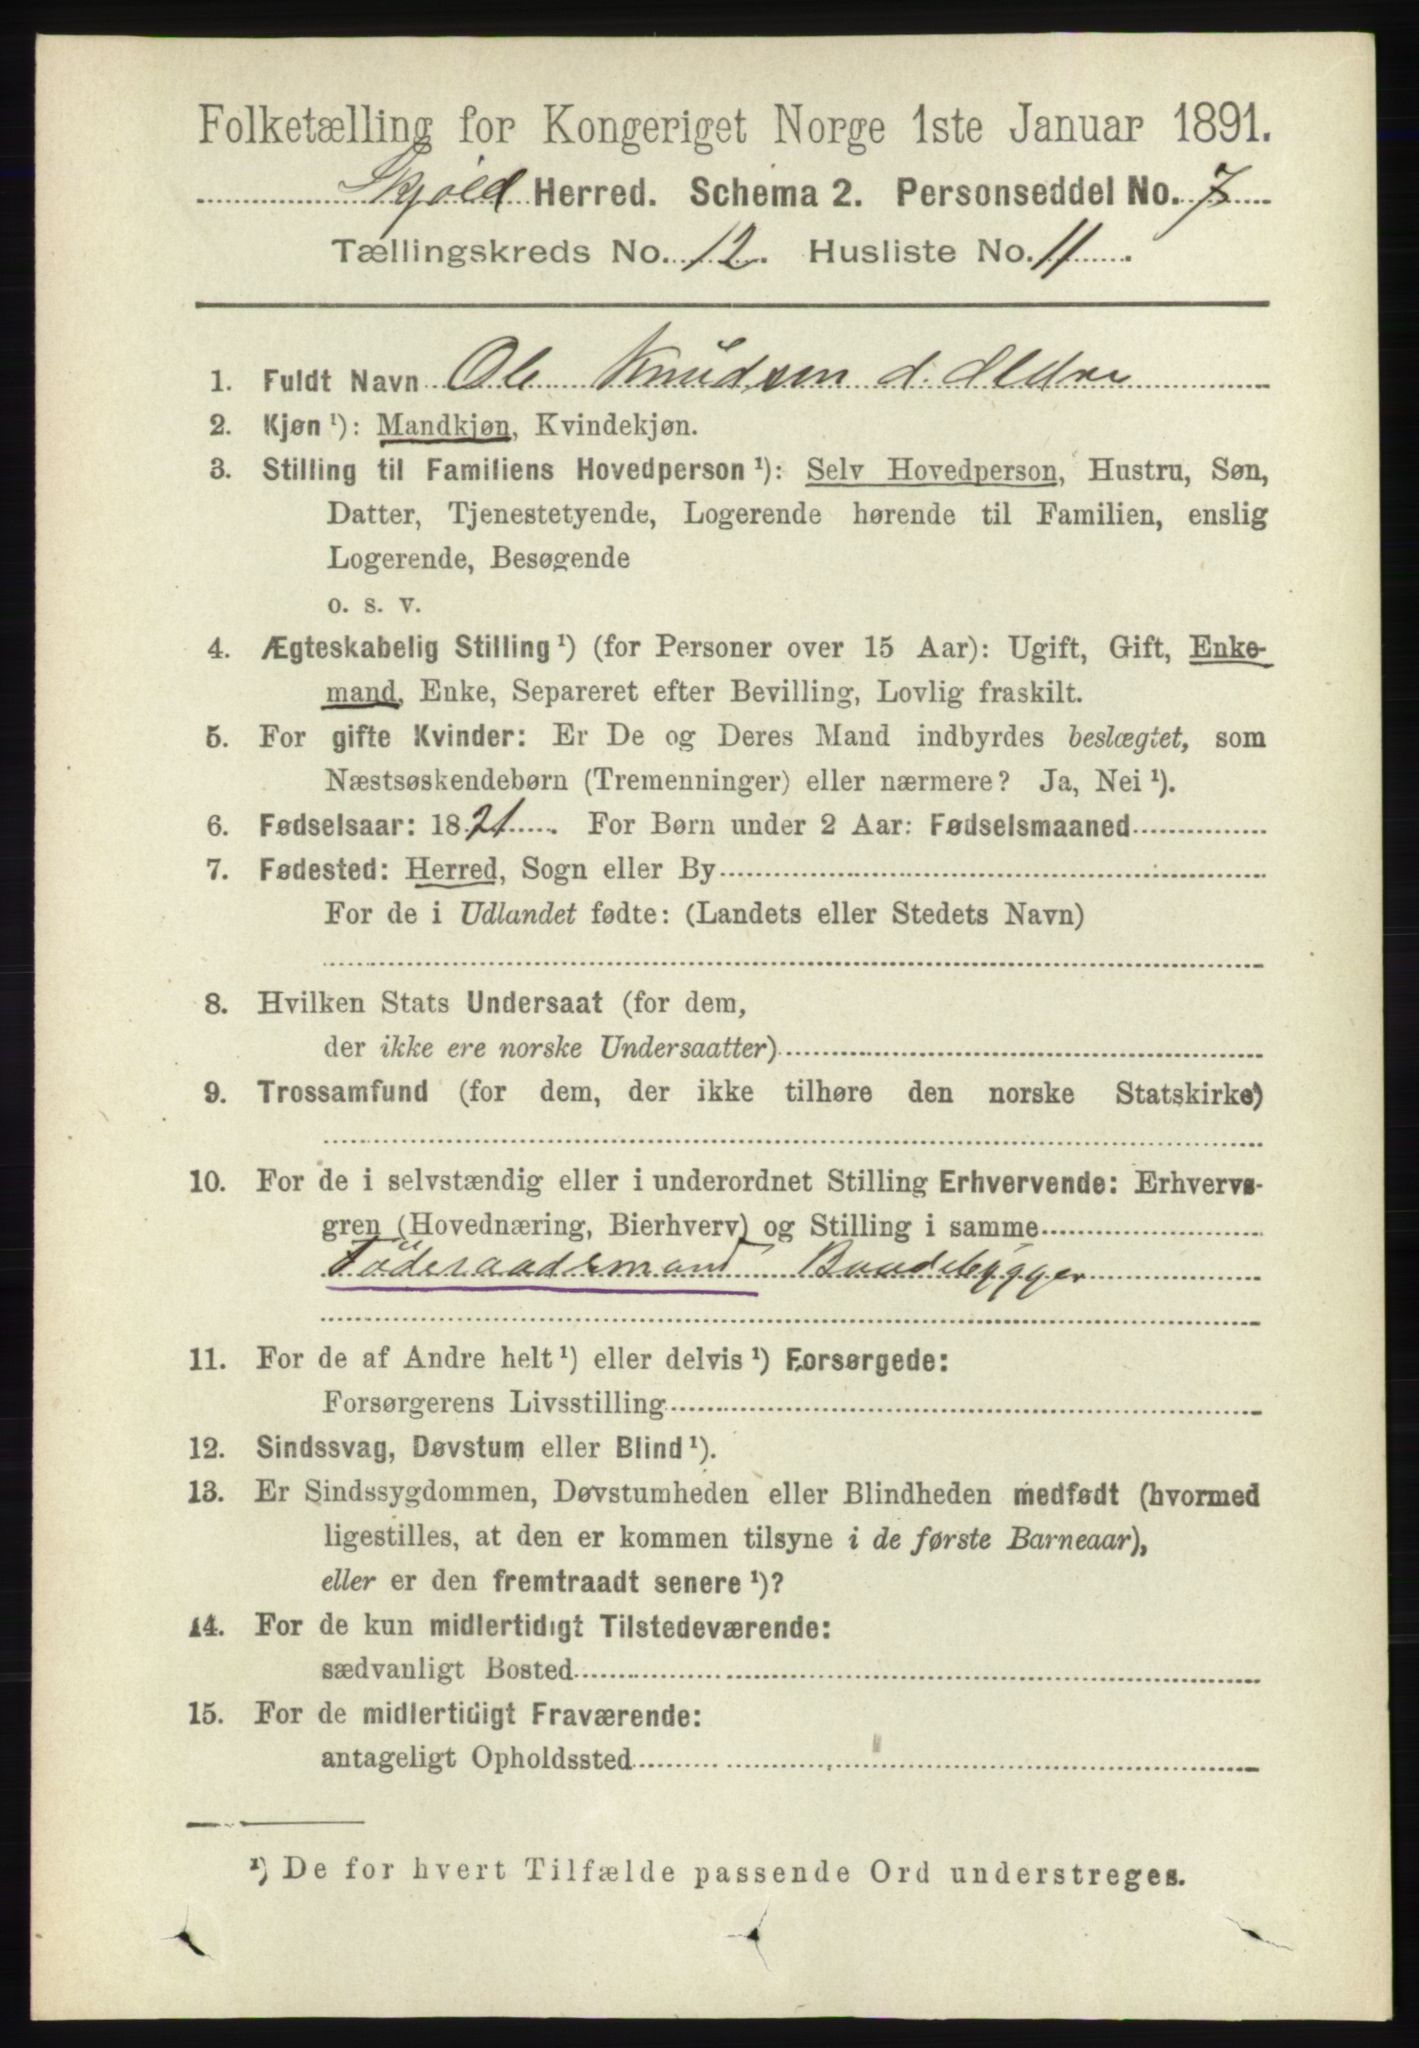 Folketælling for Kongeriget Norge 1ste Januar 1891.
Skjold Herred. Schema 2. Personseddel No. 7
Tællingskreds No. 12. Husliste No. 11.
1. Fuldt Navn Ole Knudsen d. Ældre
2. Kjøn ¹): Mandkjøn, Kvindekjøn.
3. Stilling til Familiens Hovedperson ¹): Selv Hovedperson, Hustru, Søn,
Datter, Tjenestetyende, Logerende hørende til Familien, enslig
Logerende, Besøgende
o. s. v.
4. Ægteskabelig Stilling ¹) (for Personer over 15 Aar): Ugift, Gift, Enke-
mand, Enke, Separeret efter Bevilling, Lovlig fraskilt.
5. For gifte Kvinder: Er De og Deres Mand indbyrdes beslægtet, som
Næstsøskendebørn (Tremenninger) eller nærmere? Ja, Nei ¹).
6. Fødselsaar: 1821. For Børn under 2 Aar: Fødselsmaaned
7. Fødested: Herred, Sogn eller By
For de i Udlandet fødte: (Landets eller Stedets Navn)
8. Hvilken Stats Undersaat (for dem,
der ikke ere norske Undersaatter)
9. Trossamfund (for dem, der ikke tilhøre den norske Statskirke)
10. For de i selvstændig eller i underordnet Stilling Erhvervende: Erhvervs-
gren (Hovednæring, Bierhverv) og Stilling i samme
Föderaadsmand Baadebygger
11. For de af Andre helt ¹) eller delvis ¹) Forsørgede:
Forsørgerens Livsstilling
12. Sindssvag, Døvstum eller Blind ¹).
13. Er Sindssygdommen, Døvstumheden eller Blindheden medfødt (hvormed
ligestilles, at den er kommen tilsyne i de første Barneaar),
eller er den fremtraadt senere ¹)?
14. For de kun midlertidigt Tilstedeværende:
sædvanligt Bosted
15. For de midlertidigt Fraværende:
antageligt Opholdssted
¹) De for hvert Tilfælde passende Ord understreges.